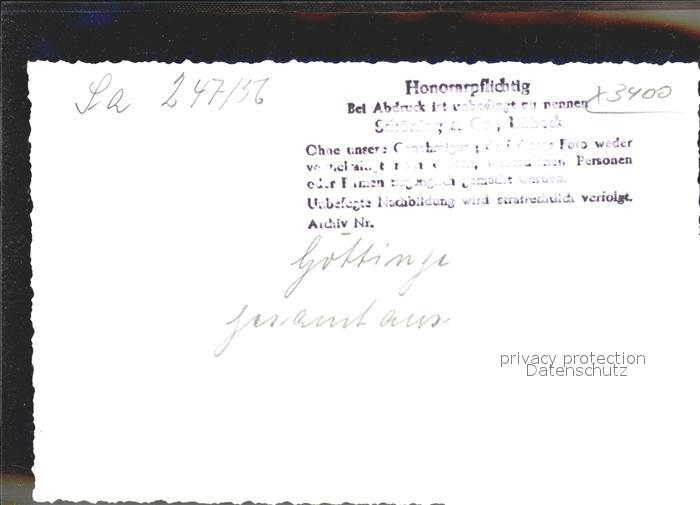 Sa 247/56
Honorarpflichtig
Bei Abdruck ist unbedingt zu nennen
x3400
Schöning & Co., Lübeck
Ohne unsere Genehmigung darf dieses Foto weder
vervielfältigt noch dritten, Personen
oder Firmen zugänglich gemacht werden.
Unbefugte Nachbildung wird strafrechtlich verfolgt.
Archiv Nr.
Göttinge
gesamtaus.
privacy protection
Datenschutz